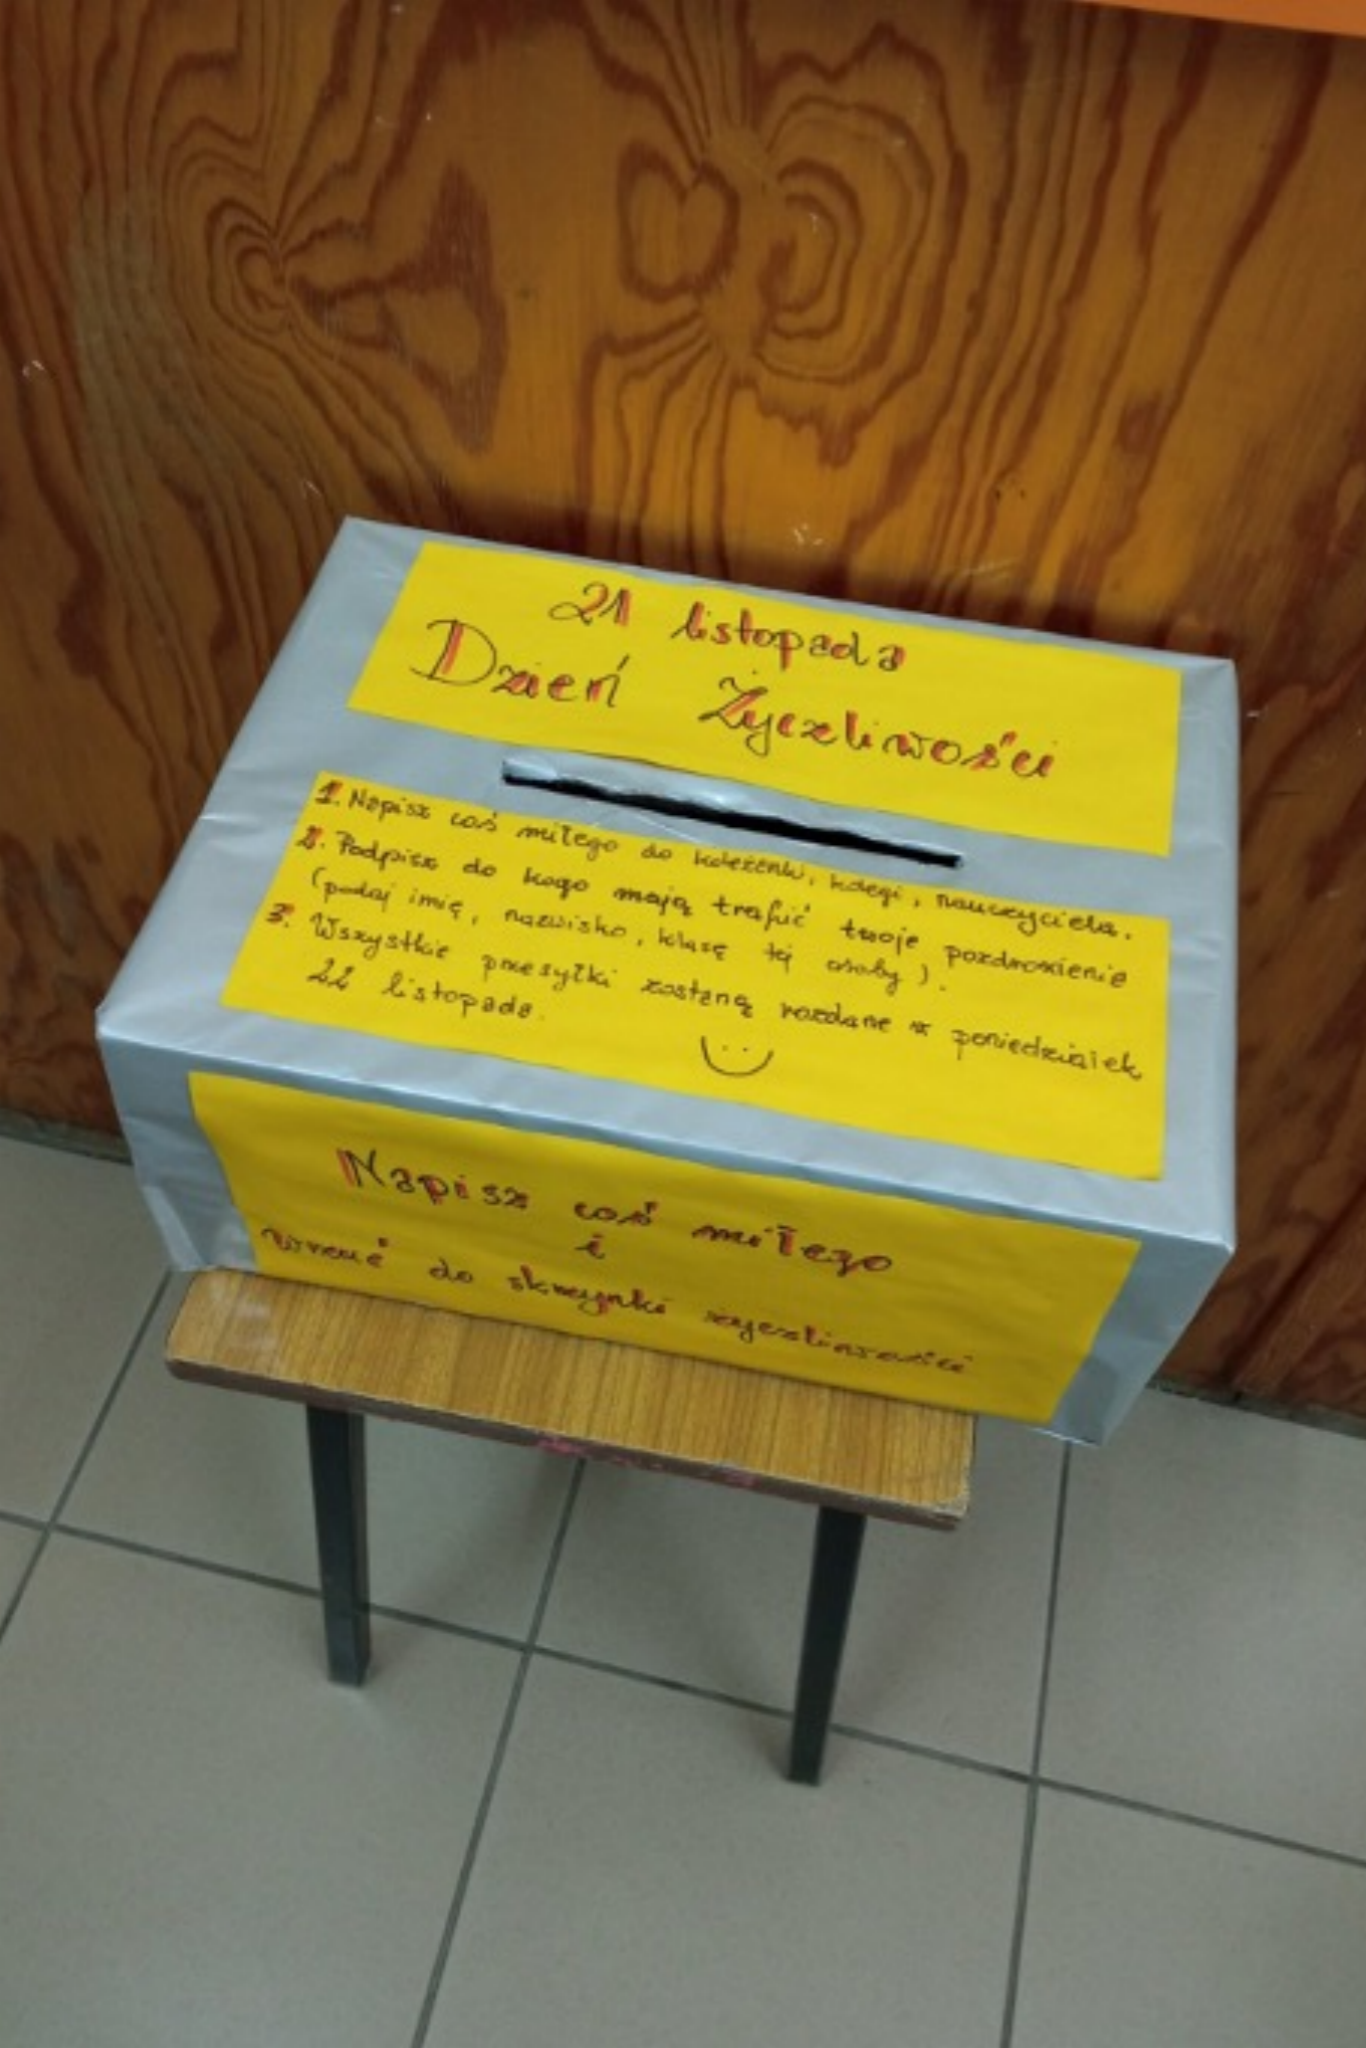 21 listopada
Dzień Życzliwości
1. Napisz coś miłego do koleżenki, kolegi, nauczyciela.
2. Podpisz do kogo mają trafić twoje pozdrowienie
(podaj imię, nazwisko, klasę tej osoby).
3. Wszystkie przesyłki zostaną rozdane w poniedziałek
22 listopada.
Napisz coś miłego
i
wrzuć do skrzynki życzliwości